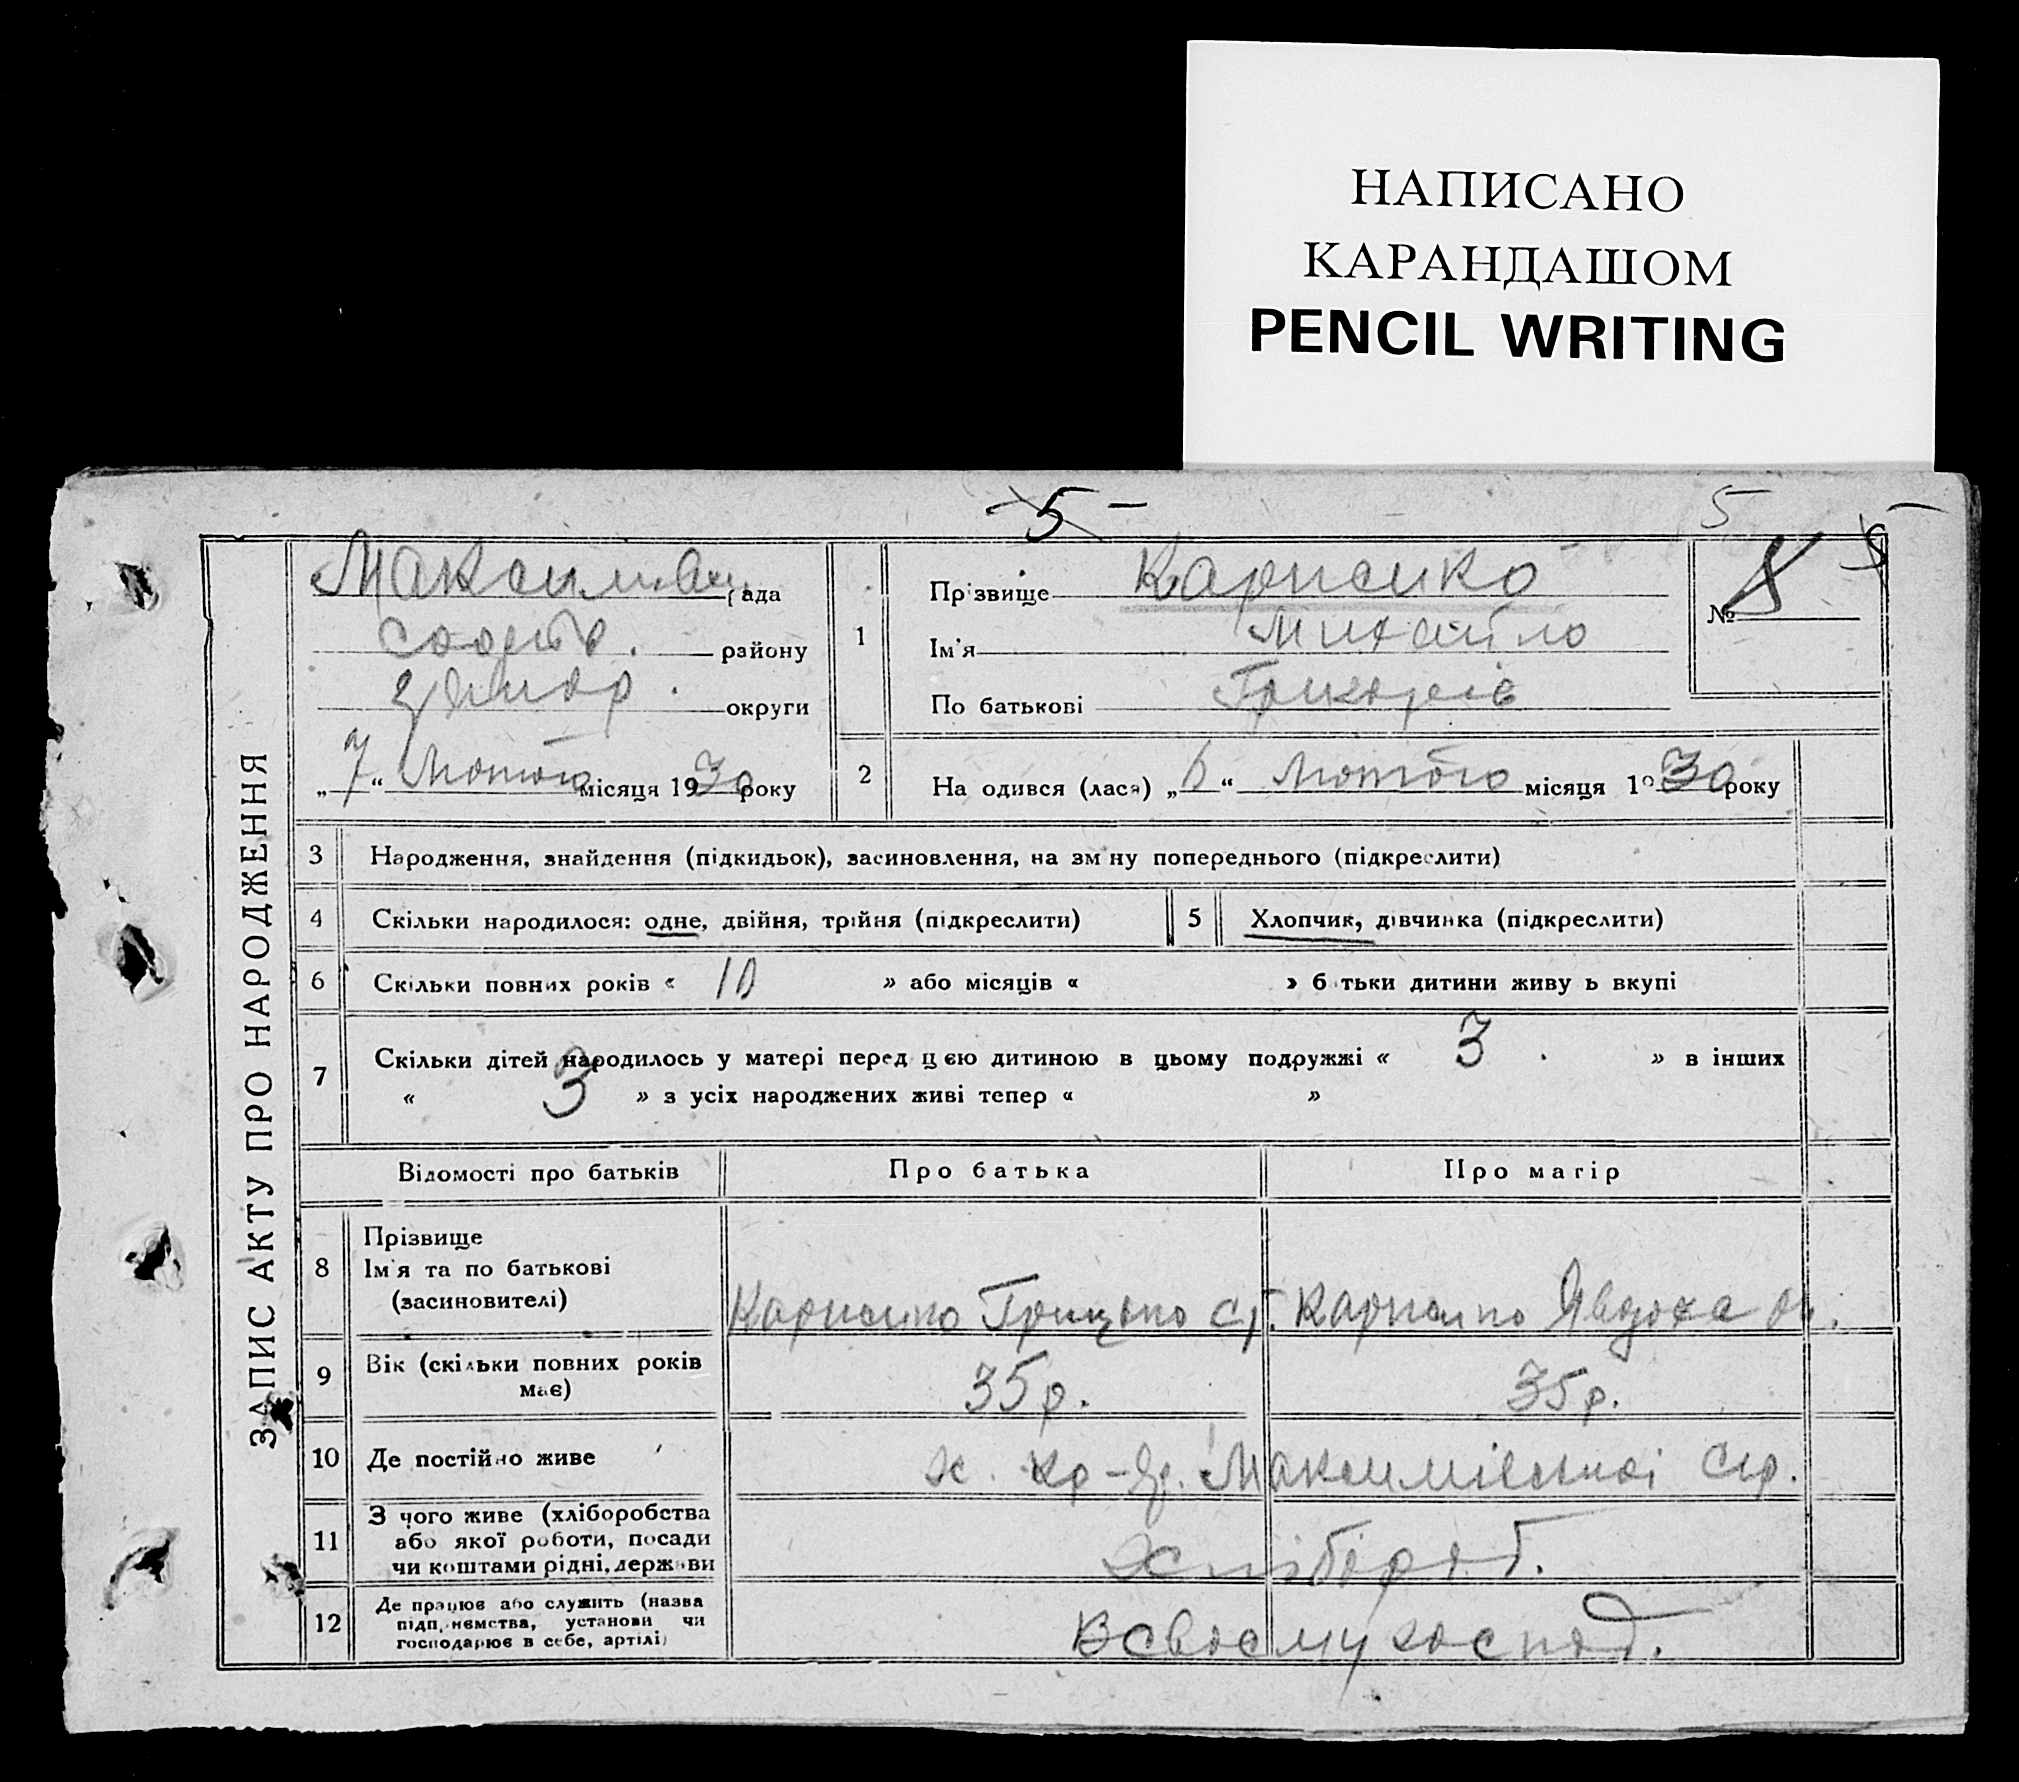 НАПИСАНО
КАРАНДАШОМ
PENCIL WRITING
-5-
5
5
ЗАПИС АКТУ ПРО НАРОДЖЕННЯ
рада
району
округи
„7“ Лютого місяця 1930 року
1
Прізвище Карпенко
Ім'я Михайло
По батькові Григорів
№ 8
2
На одився (лася) „6“ Лютого місяця 1930 року
3 Народження, знайдення (підкидьок), засиновлення, на зміну попереднього (підкреслити)
4 Скільки народилося: одне, двійня, трійня (підкреслити)
5 Хлопчик, дівчинка (підкреслити)
6 Скільки повних років « 10 » або місяців « » батьки дитини живуть вкупі
7 Скільки дітей народилось у матері перед цією дитиною в цьому подружжі « 3 » в інших
« 3 » з усіх народжених живі тепер « »
Відомості про батьків
Про батька
Про матір
8 Прізвище
Ім'я та по батькові
(засиновителі)
Карпенко Грицько
Карпенко Явдоха
9 Вік (скільки повних років
має)
35 р.
35 р.
10 Де постійно живе
Максимівської с/р.
11 З чого живе (хліборобства
або якої роботи, посади
чи коштами рідні, держави
Хлібороб.
12 Де працює або служить (назва
підприємства, установи чи
господарює в себе, артілі)
В своєму господ.